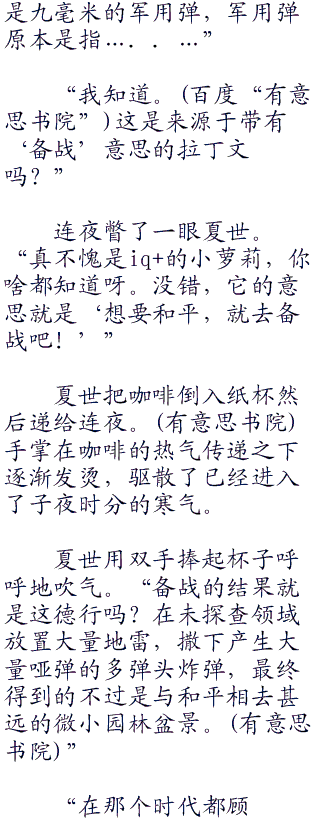 是九毫米的军用弹，军用弹
原本是指…．．…”
“我知道。(百度“有意
思书院”)这是来源于带有
‘备战’意思的拉丁文
吗？”
连夜瞥了一眼夏世。
“真不愧是iq+的小萝莉，你
啥都知道呀。没错，它的意
思就是‘想要和平，就去备
战吧！’”
夏世把咖啡倒入纸杯然
后递给连夜。(有意思书院)
手掌在咖啡的热气传递之下
逐渐发烫，驱散了已经进入
了子夜时分的寒气。
夏世用双手捧起杯子呼
呼地吹气。“备战的结果就
是这德行吗？在未探查领域
放置大量地雷，撒下产生大
量哑弹的多弹头炸弹，最终
得到的不过是与和平相去甚
远的微小园林盆景。(有意思
书院)”
“在那个时代都顾